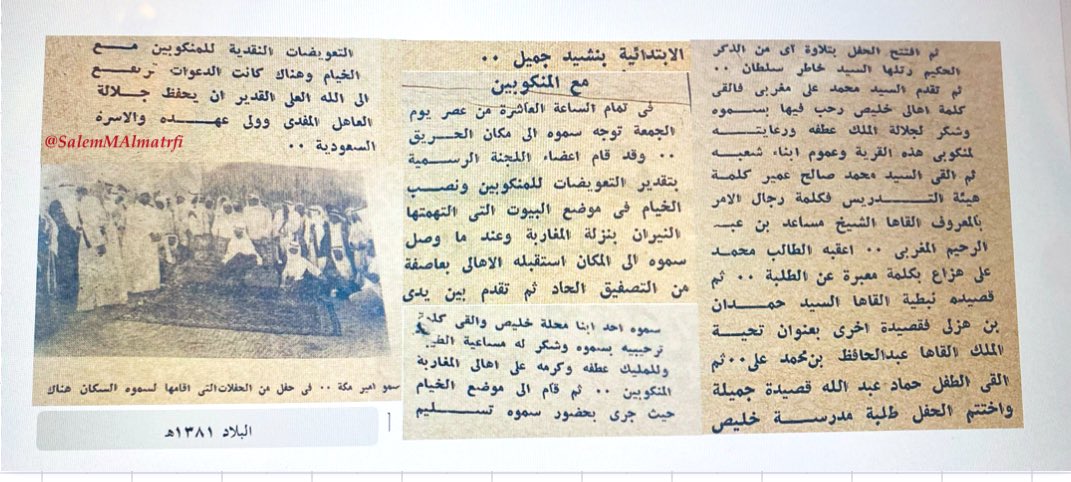 ثم افتتح الحفل بتلاوة آى من الذكر
الحكيم رتلها السيد خاطر سلطان ..
ثم تقدم السيد محمد على مغربى فالقى
كلمة اهالى خليص رحب فيها بسموه
وشكر لجلالة الملك عطفه ورعايته
لمنكوبى هذه القرية وعموم ابناء شعبه
ثم القى السيد محمد صالح عمير كلمة
هيئة التدريس فكلمة رجال الامر
بالمعروف القاها الشيخ مساعد بن عبد
الرحيم المغربى .. اعقبه الطالب محمد
على هزاع بكلمة معبرة عن الطلبة .. ثم
قصيده نبطية القاها السيد حمدان
بن هزلى فقصيدة اخرى بعنوان تحية
الملك القاها عبدالحافظ بن محمد على .. ثم
القى الطفل حماد عبد الله قصيدة جميلة
واختتم الحفل طلبة مدرسة خليص
الابتدائية بنشيد جميل ..
مع المنكوبين
فى تمام الساعة العاشرة من عصر يوم
الجمعة توجه سموه الى مكان الحريق
.. وقد قام اعضاء اللجنة الرسمية
بتقدير التعويضات للمنكوبين ونصب
الخيام فى موضع البيوت التى التهمتها
النيران بنزلة المغاربة وعند ما وصل
سموه الى المكان استقبله الاهالى بعاصفة
من التصفيق الحاد ثم تقدم بين يدى
سموه احد ابنا محلة خليص والقى كلمة
ترحيبيه بسموه وشكر له مساعية الطيبة
وللمليك عطفه وكرمه على اهالى المغاربة
المنكوبين .. ثم قام الى موضع الخيام
حيث جرى بحضور سموه تسليم
التعويضات النقدية للمنكوبين مع
الخيام وهناك كانت الدعوات ترتفع
الى الله العلى القدير ان يحفظ جلالة
العاهل المفدى وولى عهده والاسرة
السعودية ..
@SalemMAlmatrfi
سمو امير مكة .. فى حفل من الحفلات التى اقامها لسموه السكان هناك
البلاد ١٣٨١هـ